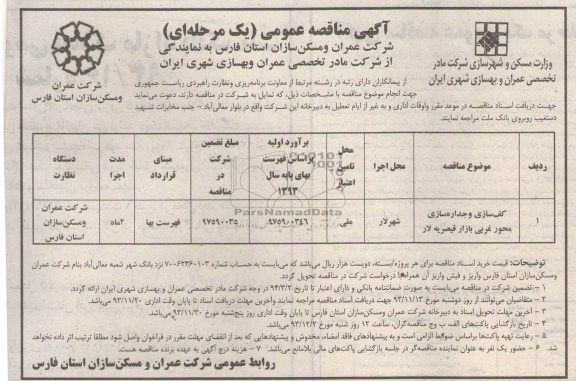 آگهی مناقصه عمومی (یک مرحله‌ای)
شرکت عمران ومسکن‌سازان استان فارس به نمایندگی
از شرکت مادر تخصصی عمران وبهسازی شهری ایران
وزارت مسکن و شهرسازی شرکت مادر
تخصصی عمران و بهسازی شهری ایران
شرکت عمران
ومسکن‌سازان استان فارس
از پیمانکاران دارای رتبه در رشته مرتبط از معاونت برنامه‌ریزی ونظارت راهبردی ریاست جمهوری
جهت انجام موضوع مناقصه با مشخصات ذیل، که تمایل به شرکت در مناقصه دارند، دعوت می‌نماید
جهت دریافت اسناد مناقصه در موعد مقرر واوقات اداری و به غیر از ایام تعطیل به دبیرخانه این شرکت واقع در بلوار معالی‌آباد - جنب مخابرات شهید
دستغیب روبروی بانک ملت مراجعه نمایند.
ردیف
موضوع مناقصه
محل اجرا
محل تامین اعتبار
برآورد اولیه براساس فهرست بهای پایه سال ۱۳۹۳
مبلغ تضمین شرکت در مناقصه
مبنای قرارداد
مدت اجرا
دستگاه نظارت
۱
کف‌سازی وجداره‌سازی محور غربی بازار قیصریه لار
شهرلار
ملی
فهرست بها
۲ماه
شرکت عمران ومسکن‌سازان استان فارس
ParsNamadData
توضیحات: قیمت خرید اسناد مناقصه برای هر پروژه/بسته، دویست هزار ریال می‌باشد که می‌بایست به حساب شماره ۷۰۰۶۲۴۶۰۱۰۳ نزد بانک شهر شعبه معالی‌آباد بنام شرکت عمران
ومسکن‌سازان استان فارس واریز و فیش واریز آن همراه‌با درخواست شرکت در مناقصه تحویل گردد.
۱ - تضمین شرکت در مناقصه می‌بایست به صورت ضمانتنامه بانکی و دارای اعتبار تا تاریخ ۹۴/۳/۲ در وجه شرکت مادر تخصصی عمران و بهسازی شهری ایران ارائه گردد.
۲ - متقاضیان می‌توانند از روز دوشنبه مورخ ۹۳/۱۱/۱۳ جهت دریافت اسناد مناقصه مراجعه نمایند وآخرین مهلت دریافت اسناد تا پایان وقت اداری ۹۳/۱۱/۲۰ می‌باشد.
۳ - آخرین مهلت تحویل اسناد به دبیرخانه شرکت عمران ومسکن‌سازان استان فارس تا پایان وقت اداری روز پنج‌شنبه مورخ ۹۳/۱۱/۳۰ می‌باشد.
۴ - تاریخ بازگشایی پاکت‌های الف، ب وج مناقصه‌گران، ساعت ۱۲ روز شنبه مورخ ۹۳/۱۲/۲ می‌باشد.
۵ - رعایت تهیه پاکت‌ها براساس ضوابط الزامی است و به پیشنهادهای فاقد امضاء، مخدوش و پیشنهادهایی که بعد از انقضای مهلت مقرر در فراخوان واصل شود مطلقا ترتیب اثر داده نخواهد
شد. ۶ - حضور یک نفر به عنوان نماینده مناقصه‌گر در جلسه بازگشایی پاکت‌های مالی بلامانع می‌باشد. ۷ - هزینه درج آگهی به عهده برنده مناقصه هست.
روابط عمومی شرکت عمران و مسکن‌سازان استان فارس